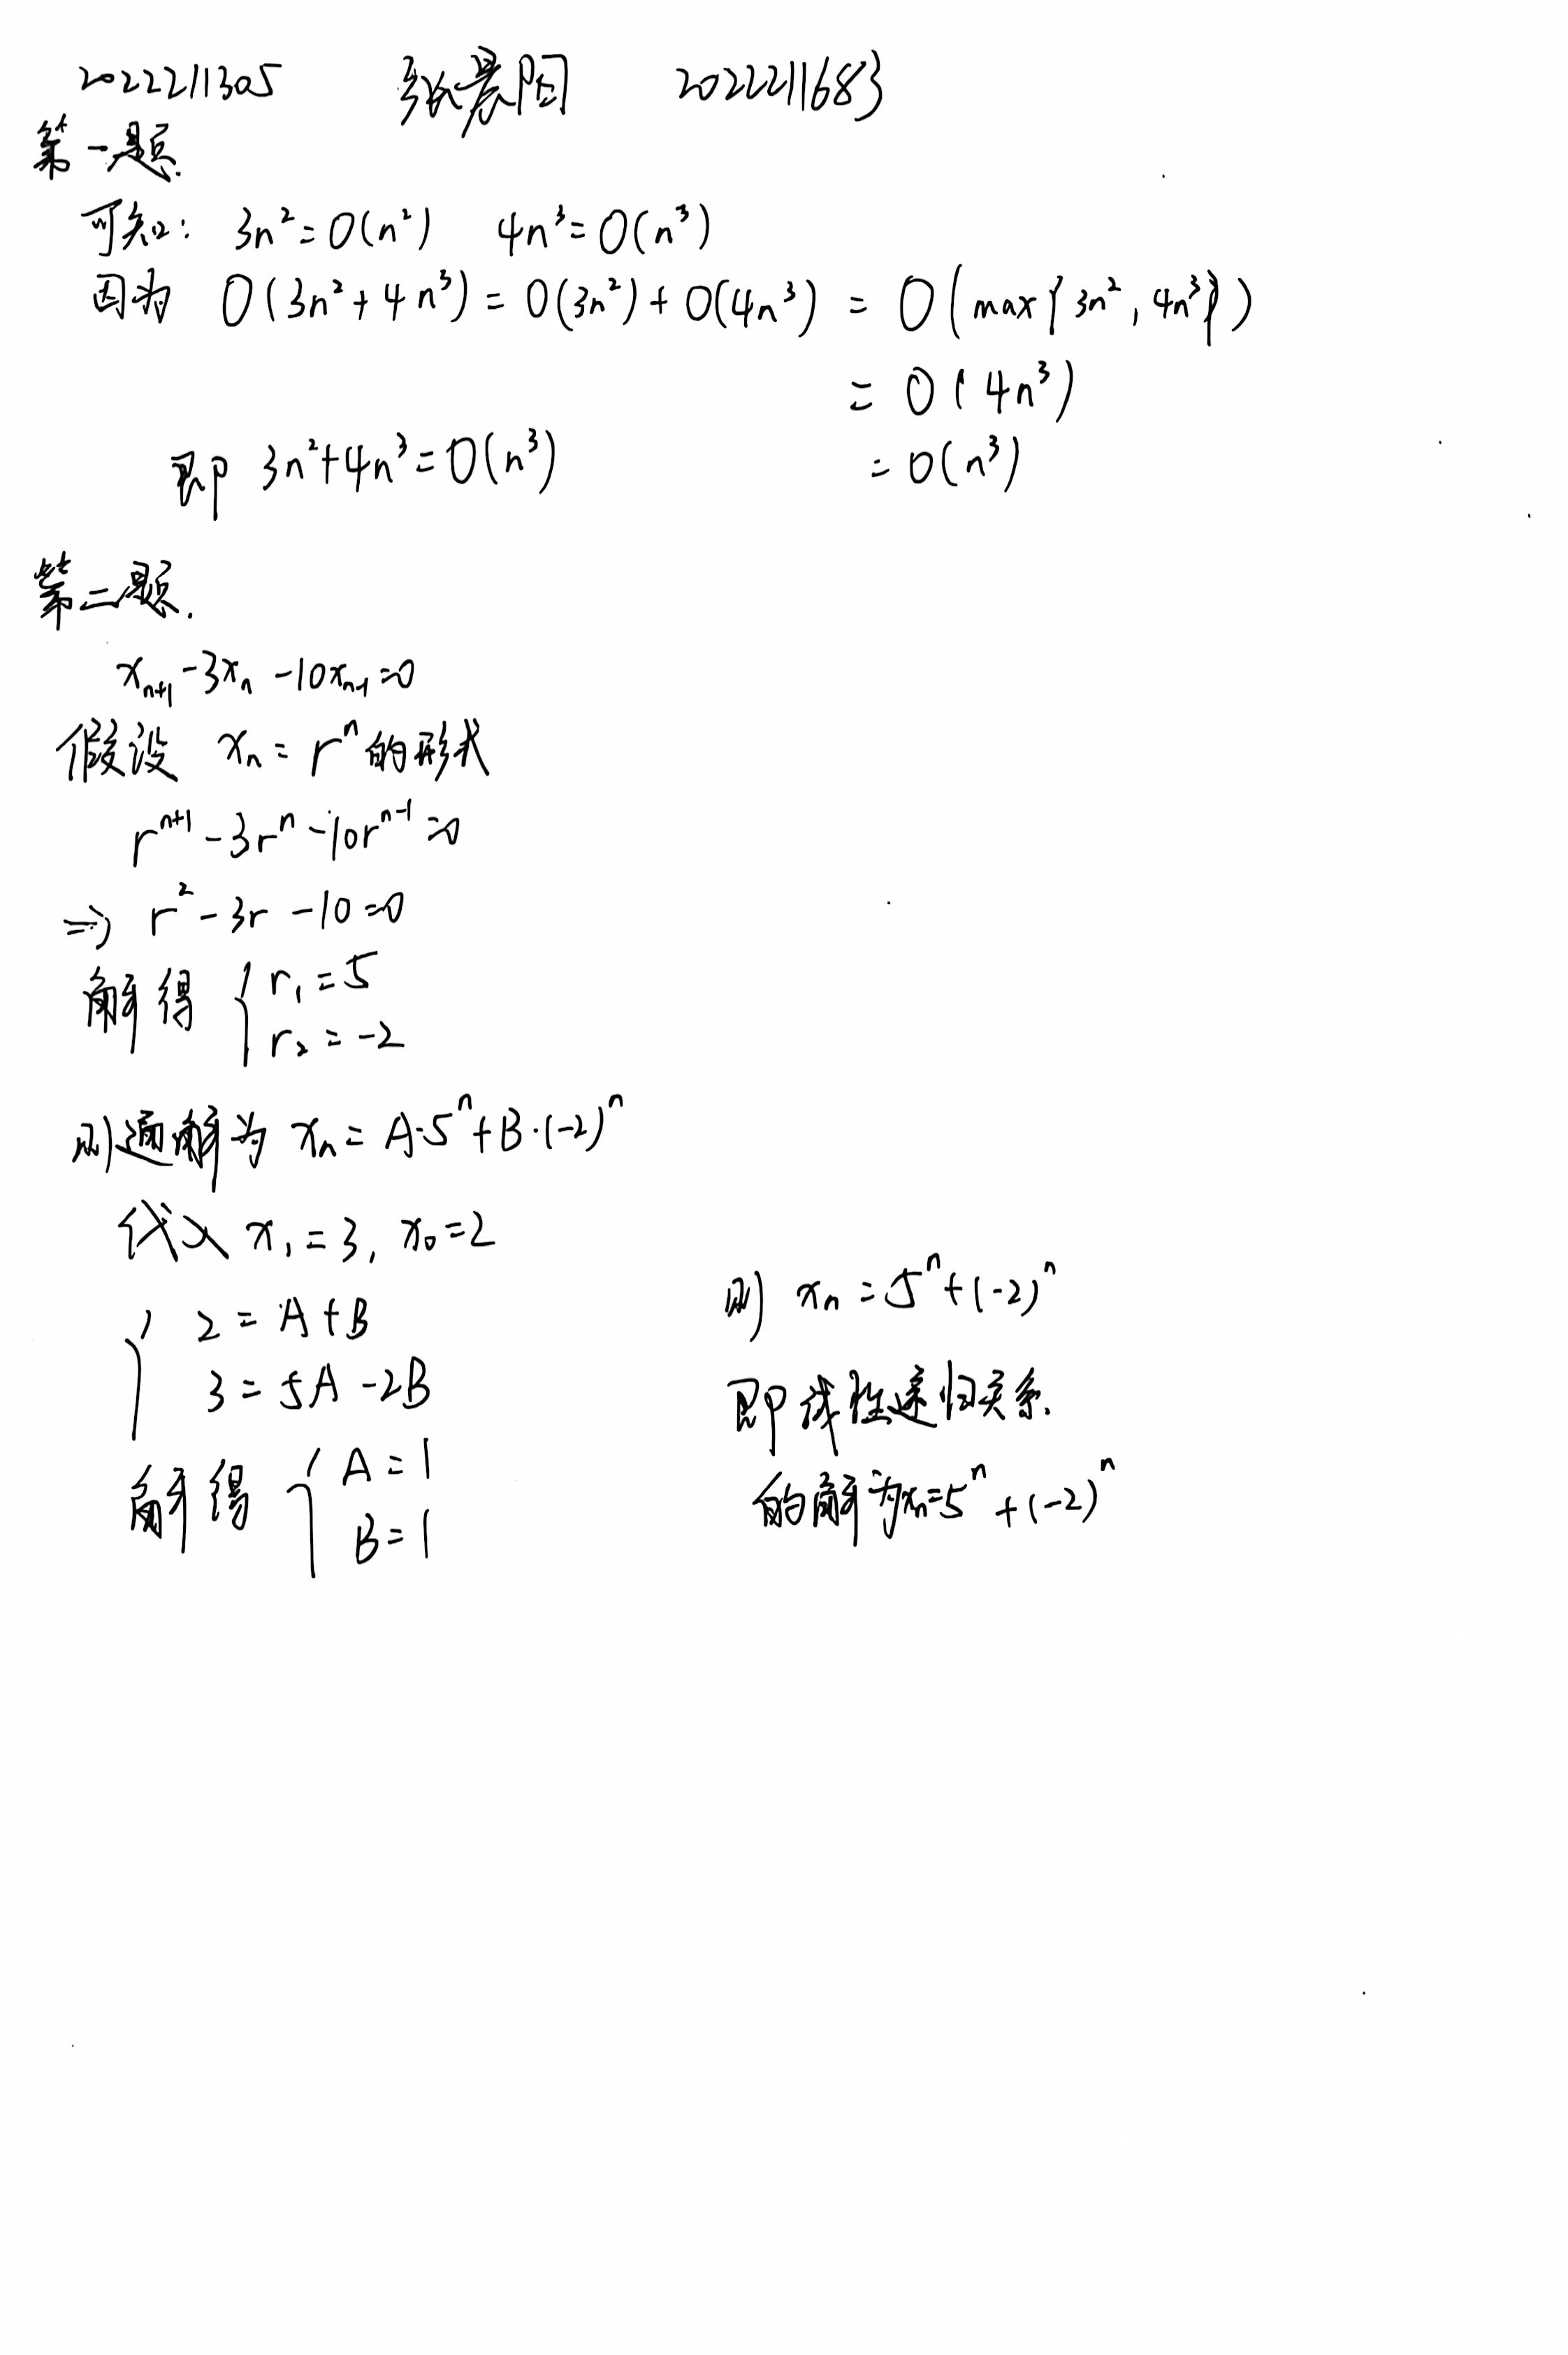 2022211305 张晨阳 2022211683
第一题.
可知: 3n²=O(n²) 4n³=O(n³)
因为 O(3n²+4n³)=O(3n²)+O(4n³) = O(max{3n²,4n³})
= O(4n³)
即 3n²+4n³=O(n³) = O(n³)
第二题.
xₙ₊₁-3xₙ-10xₙ₋₁=0
假设 xₙ=rⁿ的形式
rⁿ⁺¹-3rⁿ-10rⁿ⁻¹=0
⇒ r²-3r-10=0
解得 { r₁=5
r₂=-2
则通解为 xₙ=A·5ⁿ+B·(-2)ⁿ
代入 x₁=3, x₀=2
{ 2=A+B
3=5A-2B
解得 { A=1
B=1
则 xₙ=5ⁿ+(-2)ⁿ
即线性递归关系
的解为xₙ=5ⁿ+(-2)ⁿ